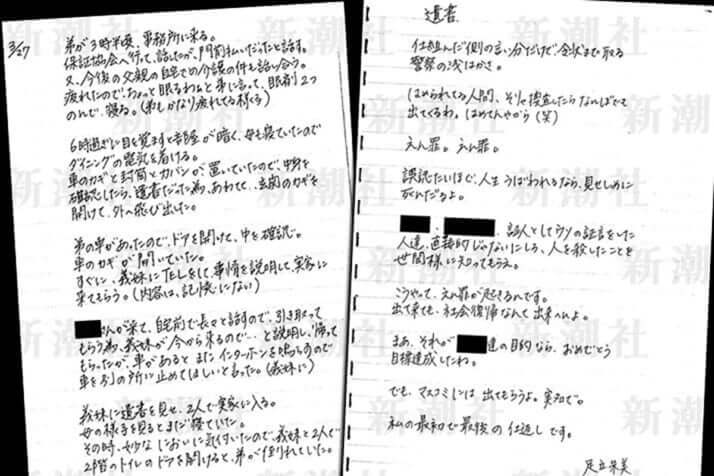 3/27 弟が3時半頃、事務所に来る。
保証協会へ行って、話したが、門前払いだったと話す。
又、今後の父親の自宅での介護の件も話し合う。
疲れたので、ちょっと眠るわねと弟に言って、眠剤2つ
のんで、寝る。(弟もかなり疲れてる様)
6時過ぎに目を覚ますと部屋が暗く、母も寝ていたので
ダイニングの電気を着ける。
車のカギと封筒とカバンが置いていたので、中身を
確認したら、遺書だった為、あわてて、玄関のカギを
開けて、外へ飛び出した。
弟の車があったので、ドアを開けて、中を確認。
車のカギが開いていた。
すぐに、義妹にTELをして、事情を説明して、実家に
来てもらう。(内容は、記憶にない)
さんが来て、自宅前で長々と話すので、引き取って
もらう為、義妹が今から来るので…と説明し、帰って
もらったが、車があるとまたインターホンを鳴らすので
車を別の所に止めてほしいと言った。(義妹に)
義妹に遺書を見せ、2人で実家に入る。
母の様子を見るとまだ寝ていた。
その時、妙なにおいに気付いたので、義妹と2人で
2階のトイレのドアを開けると、弟が倒れていました。
遺書
仕組んだ側の言い分だけで令状まで取る
警察の浅はかさ。
はめられてる人間、そりゃ捜査したらなんぼでも
出てくるわ。はめてんやから(笑)
えん罪。えん罪。
誤認だいほで、人生うばわれるなら、見せしめに
死んだるよ。
、 、証人としてウソの証言をした
人達、直接的じゃないにしろ、人を殺したことを
世間様に知ってもらえ。
こうやって、えん罪が起きるんです。
出て来ても、社会復帰なんて出来へんよ。
まあ、それが 達の目的なら、おめでとう
目標達成したね。
でも、マスコミには出てもらうよ。実名で。
私の最初で最後の仕返しです。
足立朱美
新潮社